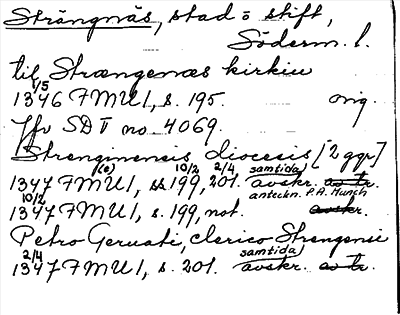 Strängnäs, stad o stift,
Söderm. l.
til Strængenæs kirkiu
1/5
1346 FMU I, s. 195. orig.
Jfr SD V no 4069.
Strenginensis diocesis [2 ggr]
(le) 10/2 2/4 samtida
1347 FMU I, ss 199, 201. avskr. av tr.
10/2 anteckn. P.A. Munch
1347 FMU I, s. 199, not. avskr.
Petro Geruati, clerico Strengensi
2/4 samtida
1347 FMU I, s. 201. avskr. av tr.